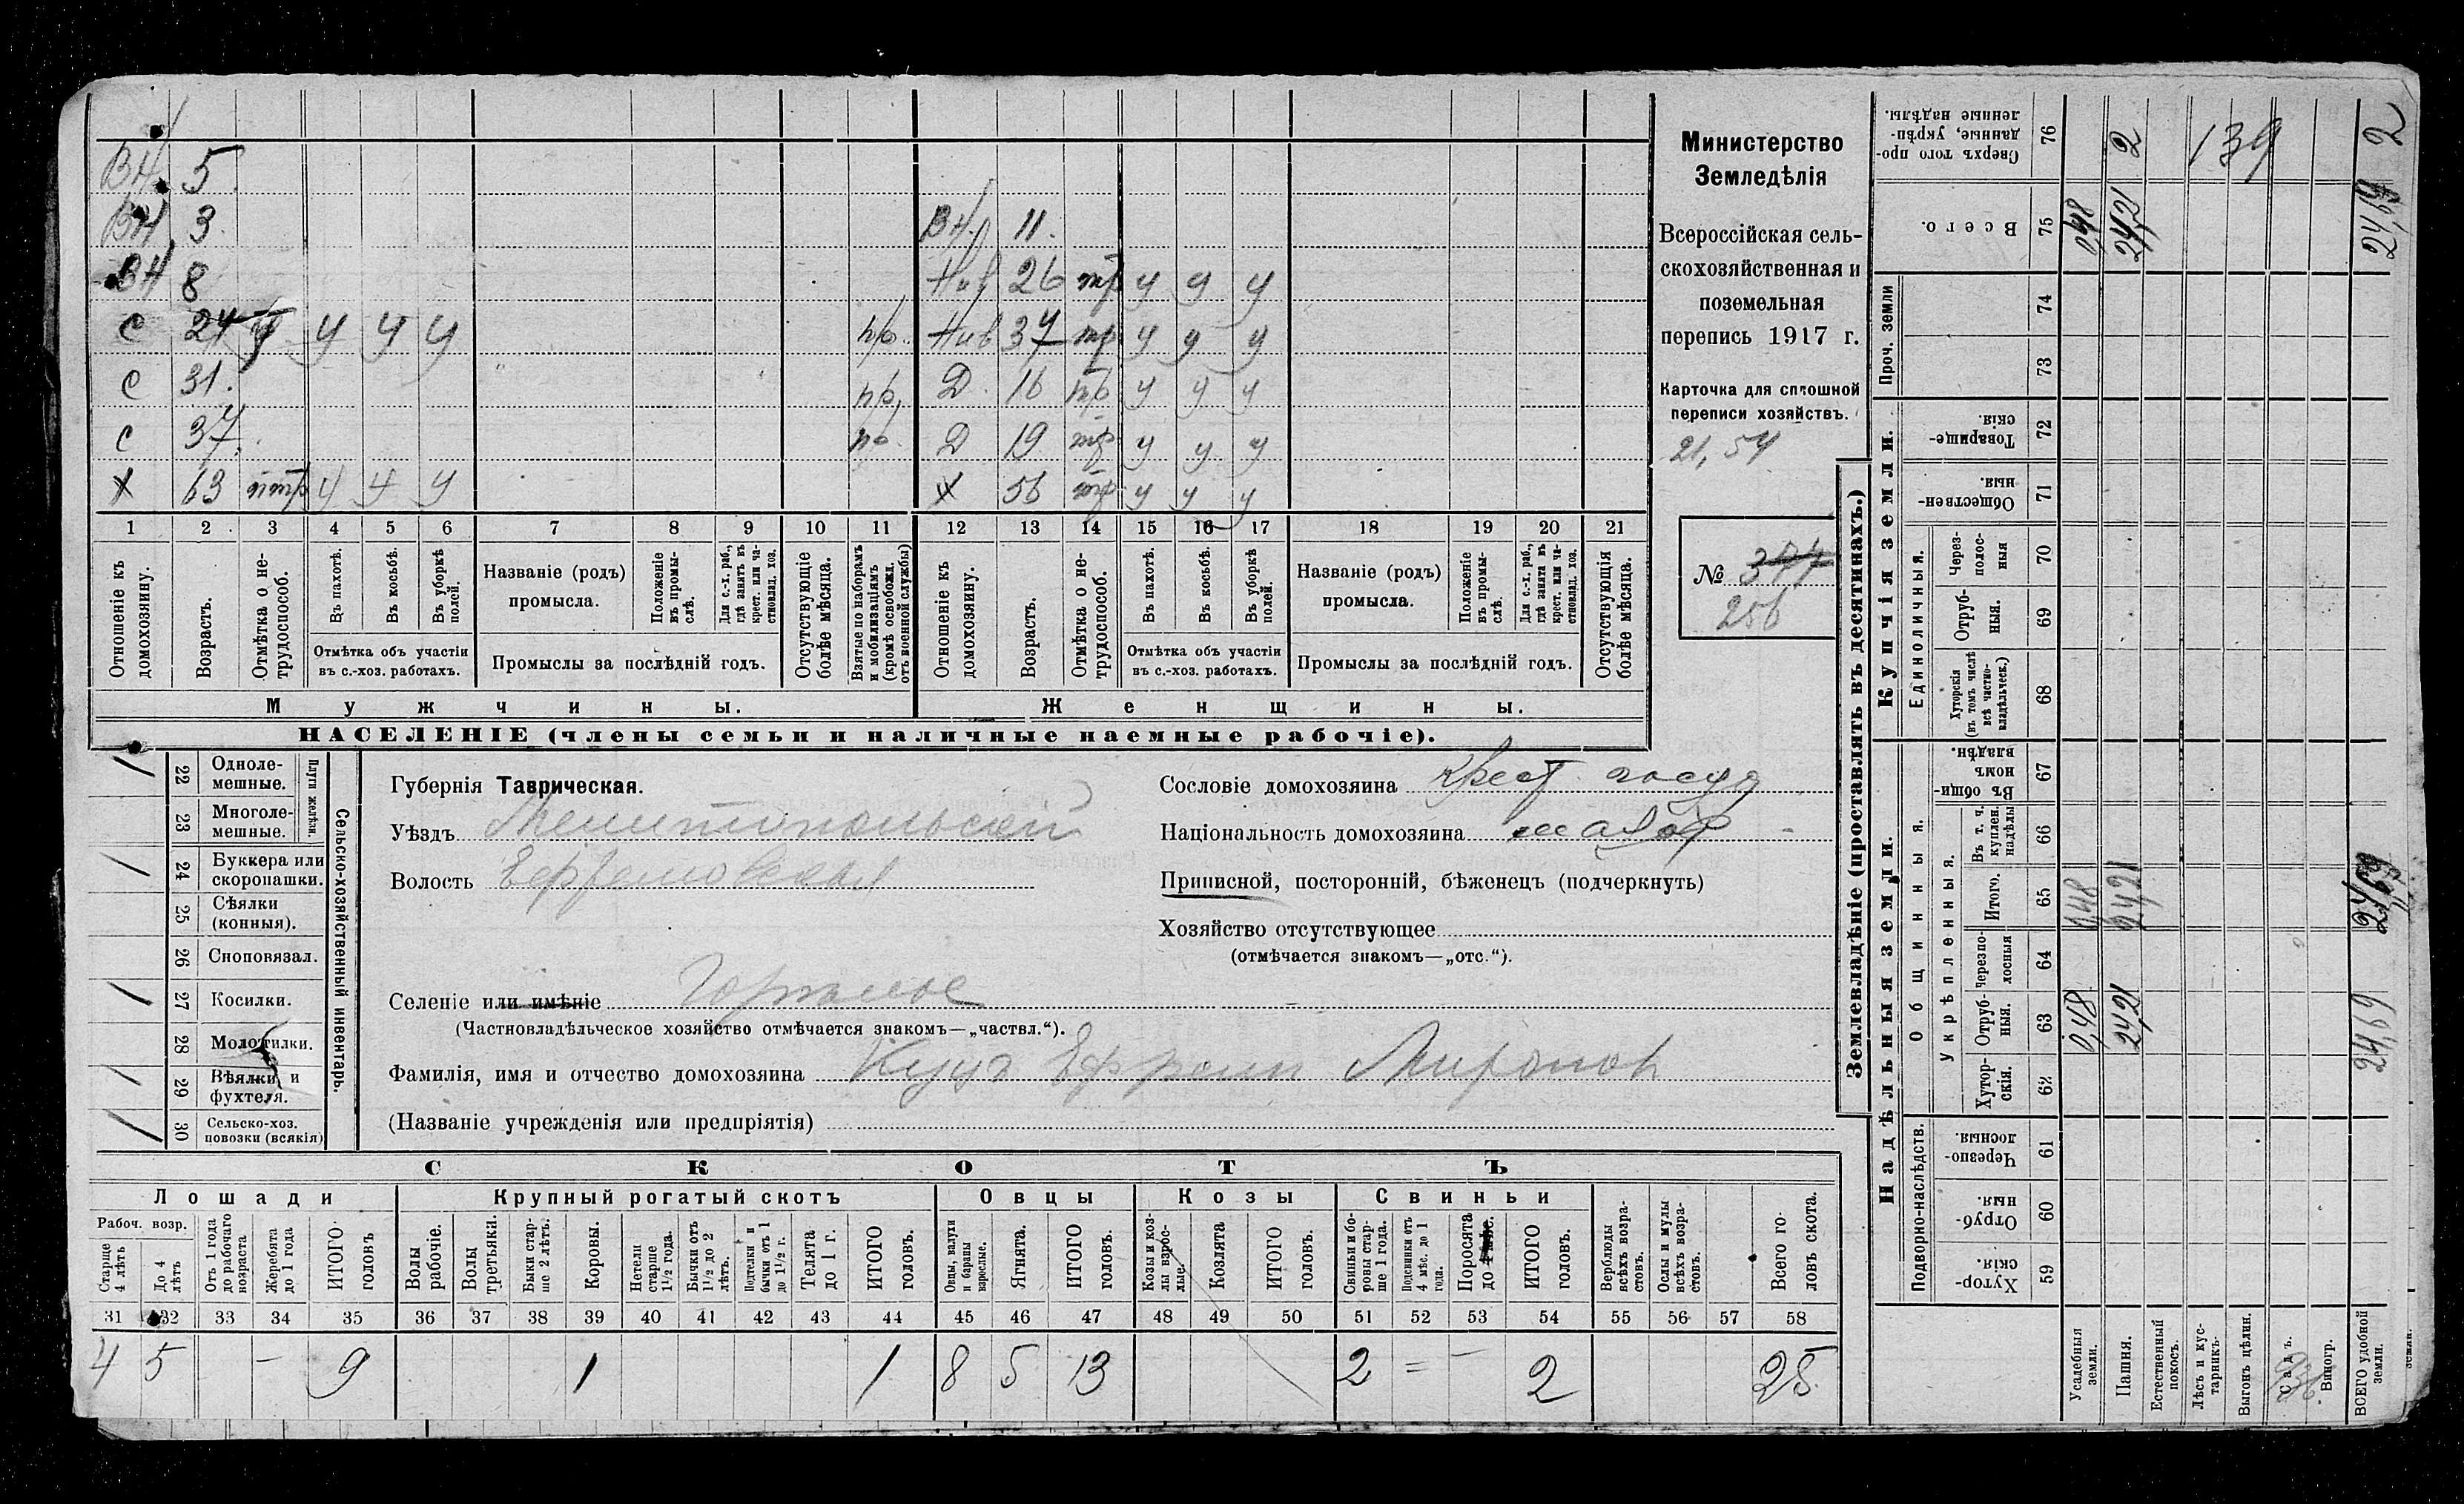 ВН 5
ВН 3 ВН. 11.
ВН 8 Нив 26 тр у у у
С 24 у у у у пр. Нив 37 тр у у у
С 31. пр, Д 16 пр у у у
С 37. пр. Д 19 тр у у у
Х 63 у у у Х 56 тр у у у
1 2 3 4 5 6 7 8 9 10 11 12 13 14 15 16 17 18 19 20 21
Отношеніе къ домохозяину.
Возрастъ.
Отмѣтка о не-трудоспособ.
Въ пахотѣ.
Въ косьбѣ.
Въ уборкѣ полей.
Отмѣтка объ участіи въ с.-хоз. работахъ.
Названіе (родъ) промысла.
Положеніе въ промы-слѣ.
Для с.-х. раб., гдѣ занятъ въ крест. или ча-стновлад. хоз.
Промыслы за послѣдній годъ.
Отсутствующіе болѣе мѣсяца.
Взятые по наборамъ и мобилизаціямъ (кромѣ освобожд. отъ военной службы)
Отношеніе къ домохозяину.
Возрастъ.
Отмѣтка о не-трудоспособ.
Въ пахотѣ.
Въ косьбѣ.
Въ уборкѣ полей.
Отмѣтка объ участіи въ с.-хоз. работахъ.
Названіе (родъ) промысла.
Положеніе въ промы-слѣ.
Для с.-х. раб., гдѣ занята въ крест. или ча-стновлад. хоз.
Промыслы за послѣдній годъ.
Отсутствующія болѣе мѣсяца.
Мужчины.
Женщины.
НАСЕЛЕНІЕ (члены семьи и наличные наемные рабочіе).
Министерство
Земледѣлія
Всероссійская сель-
скохозяйственная и
поземельная
перепись 1917 г.
Карточка для сплошной
переписи хозяйствъ.
21,54
№
256
Сельско-хозяйственный инвентарь.
Плуги желѣзн.
22 Одноле-мешные.
23 Многоле-мешные.
24 Буккера или скоропашки.
25 Сѣялки (конныя).
26 Сноповязал.
27 Косилки.
28 Молотилки.
29 Вѣялки и фухтеля.
30 Сельско-хоз. повозки (всякія)
Губернія Таврическая.
Уѣздъ Мелитопольскій
Волость Ефремовская
Селеніе или имѣніе Горъмое
(Частновладѣльческое хозяйство отмѣчается знакомъ—„частвл.“).
Фамилія, имя и отчество домохозяина Куцъ Ефрем Миронов
(Названіе учрежденія или предпріятія)
Сословіе домохозяина Крест
Національность домохозяина малор
Приписной, посторонній, бѣженецъ (подчеркнуть)
Хозяйство отсутствующее
(отмѣчается знакомъ—„отс.“).
СКОТЪ
Лошади
Крупный рогатый скотъ
Овцы
Козы
Свиньи
Рабоч. возр.
Старше 4 лѣтъ
До 4 лѣтъ
Отъ 1 года до рабочаго возраста
Жеребята до 1 года
ИТОГО головъ
Волы рабочіе.
Волы третьяки.
Быки стар-ше 2 лѣтъ.
Коровы.
Нетели старше 1½ года.
Бычки отъ 1½ до 2 лѣтъ.
Подтелки и бычки отъ 1 до 1½ г.
Телята до 1 г.
ИТОГО головъ.
Овцы, валухи и бараны взрослые.
Ягнята.
ИТОГО головъ.
Козы и коз-лы взрос-лые.
Козлята
ИТОГО головъ.
Свиньи и бо-ровы стар-ше 1 года.
Подсвинки отъ 4 мѣс. до 1 года.
Поросята до 4 мѣс.
ИТОГО головъ.
Верблюды всѣхъ возра-стовъ.
Ослы и мулы всѣхъ возра-стовъ.
Всего го-ловъ скота.
31 32 33 34 35 36 37 38 39 40 41 42 43 44 45 46 47 48 49 50 51 52 53 54 55 56 57 58
4 5 – 9 1 1 8 5 13 2 = – 2 25
Землевладѣніе (проставлять въ десятинахъ.)
Надѣльныя земли.
Купчія земли.
Проч. земли
Подворно-наслѣдств.
Общинныя.
Укрѣпленныя.
Единоличныя.
Сверхъ того про-данные, укрѣп-ленные надѣлы. 76 2 139 2
Всего. 75 0,48 24,21 24,69
74
73
Товарище-скія. 72
Обществен-ныя. 71
Через-полос-ныя 70
Отруб-ныя. 69
Хуторскія (въ томъ числѣ всѣ частно-владѣльческ.) 68
Въ общин-номъ владѣн. 67
Въ т. ч. куплен. надѣлы 66
Итого. 65 0,48 24,21 24,69
Черезпо-лосныя 64
Отруб-ныя. 63 0,48 24,21 24,69
Хутор-скія. 62
Черезпо-лосныя. 61
Отруб-ныя. 60
Хутор-скія. 59
Усадебныя земли.
Пашня.
Естественный покосъ.
Лѣсъ и кус-тарникъ.
Выгонъ цѣлин.
Садъ.
Виногр.
ВСЕГО удобной земли.